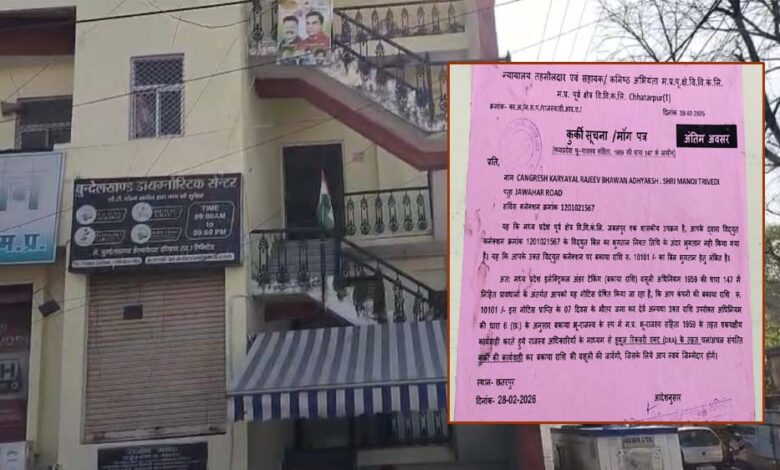 बुन्देलखण्ड डायग्नोस्टिक सेन्टर
TIME
09:00AM
to
09:00 PM
म.प्र.
न्यायालय तहसीलदार एवं सहायक/ कनिष्ठ अभियंता म.प्र.पू.क्षे.वि.वि.कं.लि.
म.प्र. पूर्व क्षेत्र वि.वि.कं.लि. Chhatarpur(T)
दिनांक 28-02-2026
कुर्की सूचना /माँग पत्र
अंतिम अवसर
(मध्यप्रदेश भू-राजस्व संहिता, 1959 की धारा 147 के अधीन)
प्रति,
नाम CANGRESH KARYAYAL RAJEEV BHAWAN ADHYAKSH . SHRI MANOJ TRIVEDI
पता JAWAHAR ROAD
सर्विस कनेक्शन क्रमांक 1201021567
यह कि मध्य प्रदेश पूर्व क्षेत्र वि.वि.कं.लि. जबलपुर एक शासकीय उपक्रम है, आपके द्वारा विद्युत
कनेक्शन क्रमांक 1201021567 के विद्युत बिल का भुगतान नियत तिथि के अंदर भुगतान नही किया गया
है। यह कि आपके उक्त विद्युत कनेक्शन पर बकाया राशि रु. 10101 /- का बिल भुगतान हेतु लंबित है।
अतः मध्य प्रदेश इलेक्ट्रिकल अंडर टेकिंग (बकाया राशि) वसूली अधिनियम 1959 की धारा 147 में
निहित प्रावधानों के अंतर्गत आपको यह नोटिस प्रेषित किया जा रहा है, कि आप कंपनी की बकाया राशि रु.
10101 /- इस नोटिस प्राप्ति के 07 दिवस के भीतर जमा कर देवें अन्यथा उक्त राशि उपरोक्त अधिनियम
की धारा 6 के अनुसार बकाया भू-राजस्व के रुप में म.प्र. भू-राजस्व संहिता 1959 के तहत एकपक्षीय
कार्यवाही करते हुये राजस्व अधिकारियों के माध्यम से ड्यूज रिकवरी एक्ट (DRA) के तहत चल/अचल संपत्ति
कुर्की की कार्यवाही कर बकाया राशि की वसूली की जावेगी, जिसके लिये आप स्वयं जिम्मेदार होगें।
स्थान- छतरपुर
दिनांक- 28-02-2026
आदेशानुसार